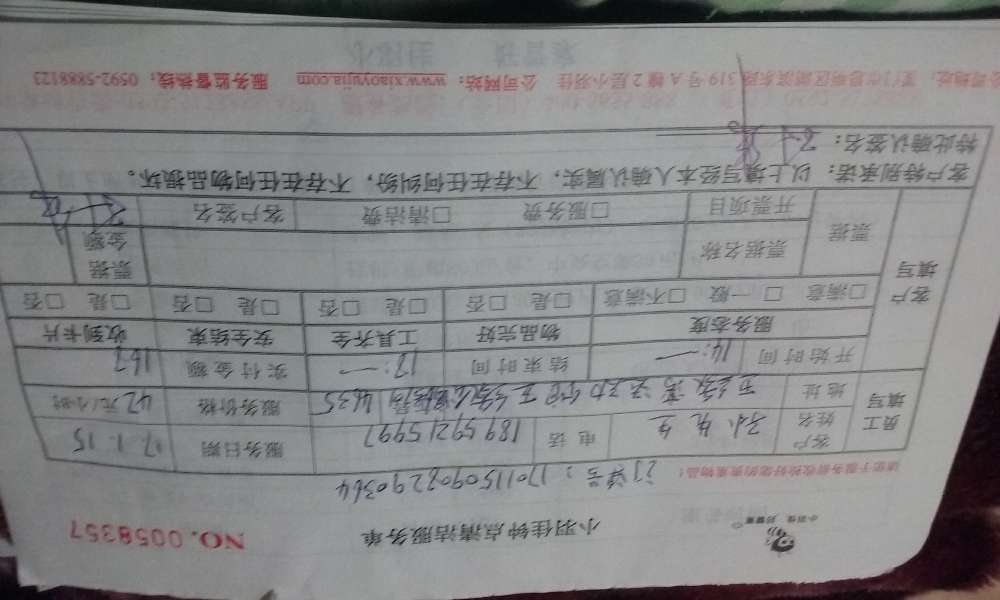 小羽佳钟点清洁服务单
NO.0058357
订单号：1701150908290364
请您于服务前收拾好您的贵重物品！
员工填写 客户姓名 孙先生 电话 18959215997 服务日期 17.1.15
地址 服务价格 42元/小时
开始时间 14:— 结束时间 18:— 实付金额 167
客户填写 服务态度 物品完好 工具齐全 安全结束 收到卡片
□满意 □一般 □不满意 □是 □否 □是 □否 □是 □否 □是 □否
票据 票据名称 票据金额
开票项目 □服务费 □清洁费 客户签名
客户特别承诺：以上填写经本人确认属实，不存在任何纠纷，不存在任何物品损坏。
特此确认签名：
319号A幢2层小羽佳 公司网站：www.xiaoyujia.com 服务监督热线：0592-5888123